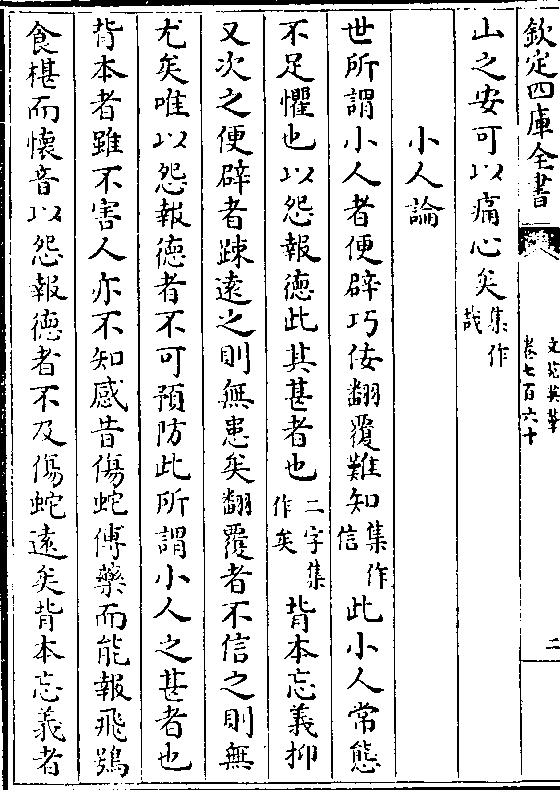 欽定四庫全書
文苑英華
卷七百六十
二
山之安可以痛心矣集作哉
小人論
世所謂小人者便辟巧佞翻覆難知集作信此小人常態
不足懼也以怨報德此其甚者也二字集作矣背本忘義抑
又次之便辟者踈逺之則無患矣翻覆者不信之則無
尤矣唯以怨報德者不可預防此所謂小人之甚者也
背本者雖不害人亦不知感昔傷蛇傅藥而能報飛鴞
食椹而懷音以怨報德者不及傷蛇逺矣背本忘義者